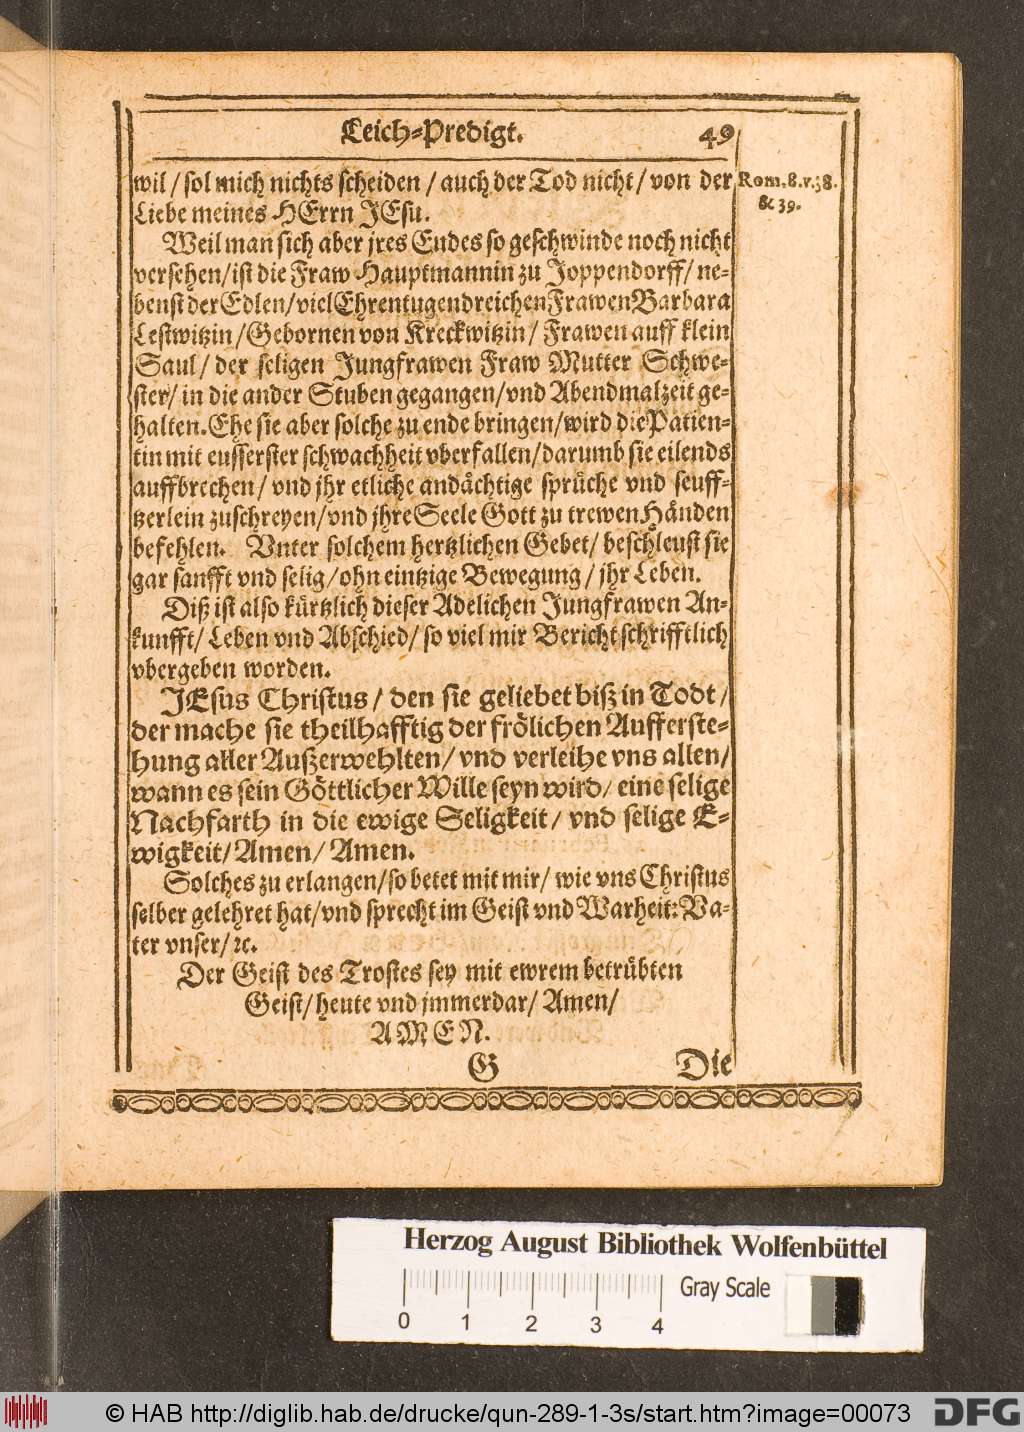 Leich-Predigt. 49
wil / sol mich nichts scheiden / auch der Tod nicht / von der
Liebe meines HErrn JEsu.
Rom. 8. v. 38.
& 39.
Weil man sich aber jres Endes so geschwinde noch nicht
versehen / ist die Fraw Hauptmannin zu Joppendorff / ne-
benst der Edlen / viel Ehrentugendreichen Frawen Barbara
Lestwitzin / Gebornen von Kreckwitzin / Frawen auff klein
Saul / der seligen Jungfrawen Fraw Mutter Schwe-
ster / in die ander Stuben gegangen / vnd Abendmalzeit ge-
halten. Ehe sie aber solche zu ende bringen / wird die Patien-
tin mit eusserster schwachheit vberfallen / darumb sie eilends
auffbrechen / vnd jhr etliche andächtige sprüche vnd seuff-
tzerlein zuschreyen / vnd jhre Seele Gott zu trewen Händen
befehlen. Vnter solchem hertzlichen Gebet / beschleust sie
gar sanfft vnd selig / ohn eintzige Bewegung / jhr Leben.
Diß ist also kürtzlich dieser Adelichen Jungfrawen An-
kunfft / Leben vnd Abschied / so viel mir Bericht schrifftlich
vbergeben worden.
JEsus Christus / den sie geliebet biß in Todt /
der mache sie theilhafftig der frölichen Aufferste-
hung aller Außerwehlten / vnd verleihe vns allen /
wann es sein Göttlicher Wille seyn wird / eine selige
Nachfarth in die ewige Seligkeit / vnd selige E-
wigkeit / Amen / Amen.
Solches zu erlangen / so betet mit mir / wie vns Christus
selber gelehret hat / vnd sprecht im Geist vnd Warheit: Va-
ter vnser / ꝛc.
Der Geist des Trostes sey mit ewrem betrübten
Geist / heute vnd jmmerdar / Amen /
AMEN.
G Die
Herzog August Bibliothek Wolfenbüttel
Gray Scale
0 1 2 3 4
© HAB http://diglib.hab.de/drucke/qun-289-1-3s/start.htm?image=00073
DFG